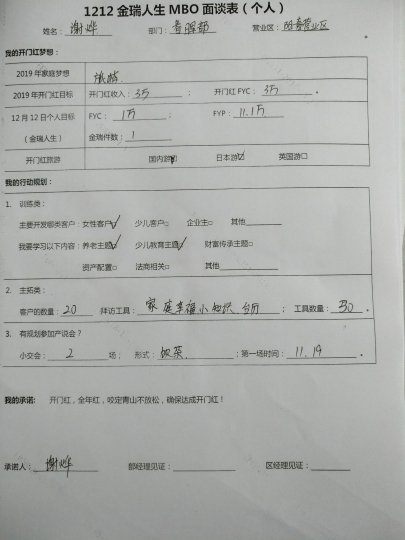 1212 金瑞人生 MBO 面谈表（个人）
姓名： 谢烨 部门： 春晖部 营业区： 营业区
我的开门红梦想：
2019 年家庭梦想
2019 年开门红目标 开门红收入： 3万 ； 开门红 FYC： 3万
12 月 12 日个人目标 FYC： 1万 ； FYP： 11.1万
（金瑞人生） 金瑞件数： 1
开门红旅游 国内游☑ 日本游☑ 英国游□
我的行动规划：
1. 训练类：
主要开发哪类客户：女性客户☑ 少儿客户□ 企业主□ 其他
我要学习以下内容：养老主题☑ 少儿教育主题☑ 财富传承主题□
资产配置□ 法商相关□ 其他
2. 主拓类：
客户的数量： 20 拜访工具： 家庭幸福小知识 台历 ； 工具数量： 30 。
3. 有规划参加产说会？
小交会： 2 场； 形式： ；第一场时间： 11.19 。
我的承诺： 开门红，全年红，咬定青山不放松，确保达成开门红！
承诺人： 谢烨 部经理见证： 区经理见证：